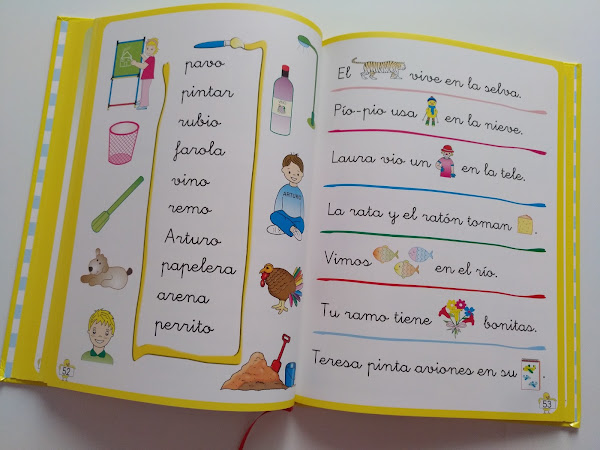 pavo
pintar
rubio
farola
vino
remo
Arturo
papelera
arena
perrito
ARTURO
52
El vive en la selva.
Pío-pío usa en la nieve.
Laura vio un en la tele.
La rata y el ratón toman .
Vimos en el río.
Tu ramo tiene bonitas.
Teresa pinta aviones en su .
53